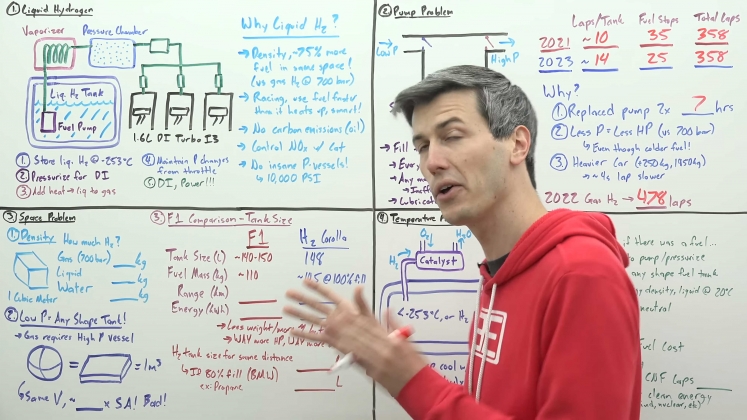 ① Liquid Hydrogen
Vaporizer
Pressure Chamber
Liq. H₂ Tank
Fuel Pump
1.6L DI Turbo I3
① Store liq. H₂ @ -253°C
② Pressurize for DI
③ Add heat → liq to gas
④ Maintain P changes
from throttle
⑤ DI, Power!!!
Why Liquid H₂?
→ Density, ~75% more
fuel in same space!
(vs gas H₂ @ 700 bar)
→ Racing, use fuel faster
than it heats up
→ No carbon emissions (oil)
→ Control NOx w/ Cat
→ No insane P-vessels!
↳ 10,000 PSI
② Pump Problem
Low P
High P
→ Fill
→ Any
→ Lubric
Laps/Tank Fuel Stops Total Laps
2021 ~10 35 358
2023 ~14 25 358
Why?
① Replaced pump 2x ? hrs
② Less P = Less HP (vs 700 bar)
↳ Even though colder fuel!
③ Heavier Car (+250kg, 1950kg)
↳ ~4s lap slower
2022 Gas H₂ → 478 laps
③ Space Problem
① Density How much H₂?
Gas (700 bar) ___ kg
Liquid ___ kg
Water ___ kg
1 Cubic Meter
② Low P = Any Shape Tank!
→ Gas requires High P vessel
= 1m³
↳ Same V, ~ ___ x SA! Bad!
③ F1 Comparison - Tank Size
F1 H₂ Corolla
Tank Size (L) ~140-150 148
Fuel Mass (kg) ~110 ~10.5 @ 100% fill
Range (km)
Energy (kWh)
↳ Less weight/more
↳ WAY more HP, WAY more
H₂ tank size for same distance
↳ ID 80% fill (BMW)
ex: Propane
L
④ Temperature
O₂ H₂O
H₂
Catalyst
<-253°C, or H₂
cool
if there was a fuel...
to pump/pressurize
any shape fuel tank
density, liquid @ 20°C
neutral
Fuel Cost
CNF Laps ___
clean energy
nuclear, etc)